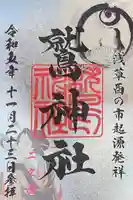 浅草酉の市起源発祥
鷲神社
令和五年十一月二十三日参拝